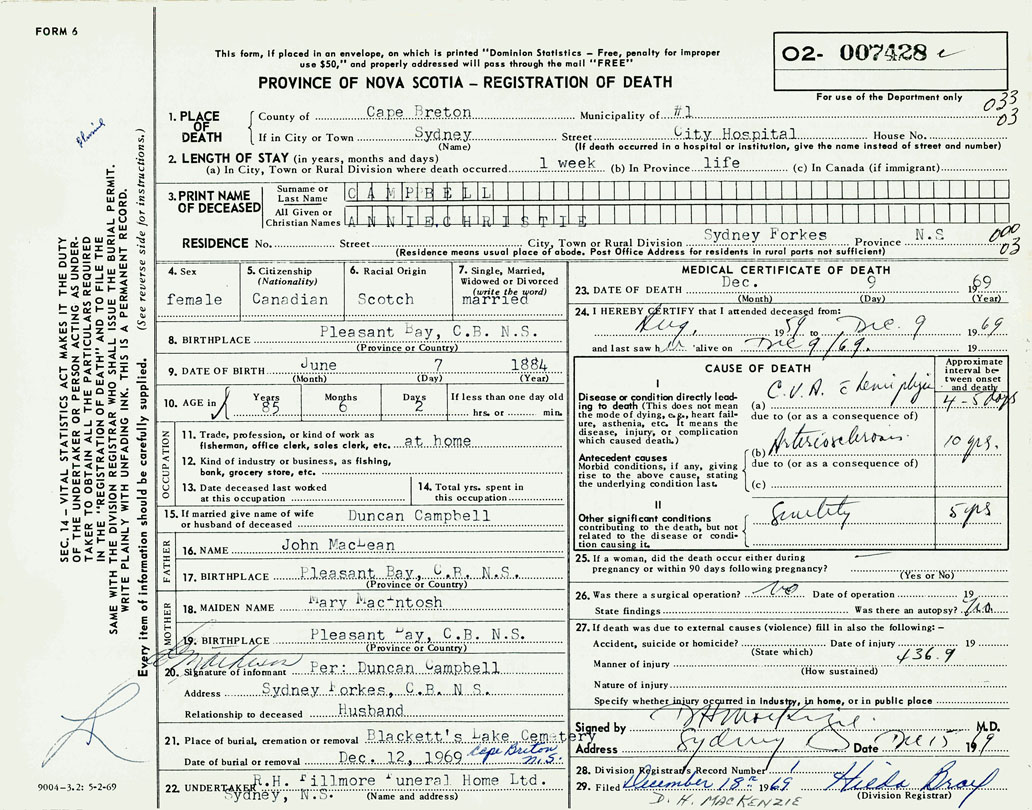 FORM 6
This form, if placed in an envelope, on which is printed "Dominion Statistics – Free, penalty for improper
use $50," and properly addressed will pass through the mail "FREE"
PROVINCE OF NOVA SCOTIA – REGISTRATION OF DEATH
02- 007428
For use of the Department only
033
03
1. PLACE OF DEATH
County of Cape Breton Municipality of #1
If in City or Town Sydney Street City Hospital House No.
(Name) (If death occurred in a hospital or institution, give the name instead of street and number)
2. LENGTH OF STAY (in years, months and days)
(a) In City, Town or Rural Division where death occurred 1 week (b) In Province life (c) In Canada (if immigrant)
3. PRINT NAME OF DECEASED
Surname or Last Name CAMPBELL
All Given or Christian Names ANNIE CHRISTIE
RESIDENCE No. Street City, Town or Rural Division Sydney Forkes Province N.S
(Residence means usual place of abode. Post Office Address for residents in rural parts not sufficient)
000
03
4. Sex female
5. Citizenship (Nationality) Canadian
6. Racial Origin Scotch
7. Single, Married, Widowed or Divorced (write the word) married
8. BIRTHPLACE Pleasant Bay, C.B. N.S.
(Province or Country)
9. DATE OF BIRTH June 7 1884
(Month) (Day) (Year)
10. AGE in Years 85 Months 6 Days 2 If less than one day old hrs. or min.
OCCUPATION
11. Trade, profession, or kind of work as fisherman, office clerk, sales clerk, etc. at home
12. Kind of industry or business, as fishing, bank, grocery store, etc.
13. Date deceased last worked at this occupation
14. Total yrs. spent in this occupation
15. If married give name of wife or husband of deceased Duncan Campbell
FATHER
16. NAME John MacLean
17. BIRTHPLACE Pleasant Bay, C.B. N.S.
(Province or Country)
MOTHER
18. MAIDEN NAME Mary MacIntosh
19. BIRTHPLACE Pleasant Bay, C.B. N.S.
(Province or Country)
20. Signature of informant Per: Duncan Campbell
Address Sydney Forkes, C.B. N S.
Relationship to deceased Husband
21. Place of burial, cremation or removal Blackett's Lake Cemetery
Cape Breton N.S.
Date of burial or removal Dec. 12, 1969
22. UNDERTAKER R.H. Fillmore Funeral Home Ltd.
Sydney, N.S. (Name and address)
MEDICAL CERTIFICATE OF DEATH
23. DATE OF DEATH Dec. 9 1969
(Month) (Day) (Year)
24. I HEREBY CERTIFY that I attended deceased from:
Aug. 1959 to Dec. 9 1969
and last saw her alive on Dec 9/69. 19
CAUSE OF DEATH
Approximate interval between onset and death
I
Disease or condition directly leading to death (This does not mean the mode of dying, e.g., heart failure, asthenia, etc. It means the disease, injury, or complication which caused death.)
(a) C.V.A. c hemiplegia 4-5 days
due to (or as a consequence of)
Antecedent causes
Morbid conditions, if any, giving rise to the above cause, stating the underlying condition last.
(b) Arteriosclerosis 10 yrs.
due to (or as a consequence of)
(c)
II
Other significant conditions contributing to the death, but not related to the disease or condition causing it.
Senility 5 yrs
25. If a woman, did the death occur either during pregnancy or within 90 days following pregnancy?
(Yes or No)
26. Was there a surgical operation? No Date of operation 19
State findings Was there an autopsy? No
27. If death was due to external causes (violence) fill in also the following: –
Accident, suicide or homicide? Date of injury 19
(State which)
436.9
Manner of injury
(How sustained)
Nature of injury
Specify whether injury occurred in Industry, in home, or in public place
Signed by D H MacKenzie M.D.
Address Sydney Date Dec 15 1969
28. Division Registrar's Record Number
29. Filed December 18th 1969
(Division Registrar)
D. H. MACKENZIE
SEC. 14 – VITAL STATISTICS ACT MAKES IT THE DUTY
OF THE UNDERTAKER OR PERSON ACTING AS UNDER-
TAKER TO OBTAIN ALL THE PARTICULARS REQUIRED
IN THE "REGISTRATION OF DEATH" AND TO FILE THE
SAME WITH THE DIVISION REGISTRAR WHO SHALL ISSUE THE BURIAL PERMIT.
WRITE PLAINLY WITH UNFADING INK. THIS IS A PERMANENT RECORD.
Every item of information should be carefully supplied. (See reverse side for instructions.)
9004-3.2: 5-2-69